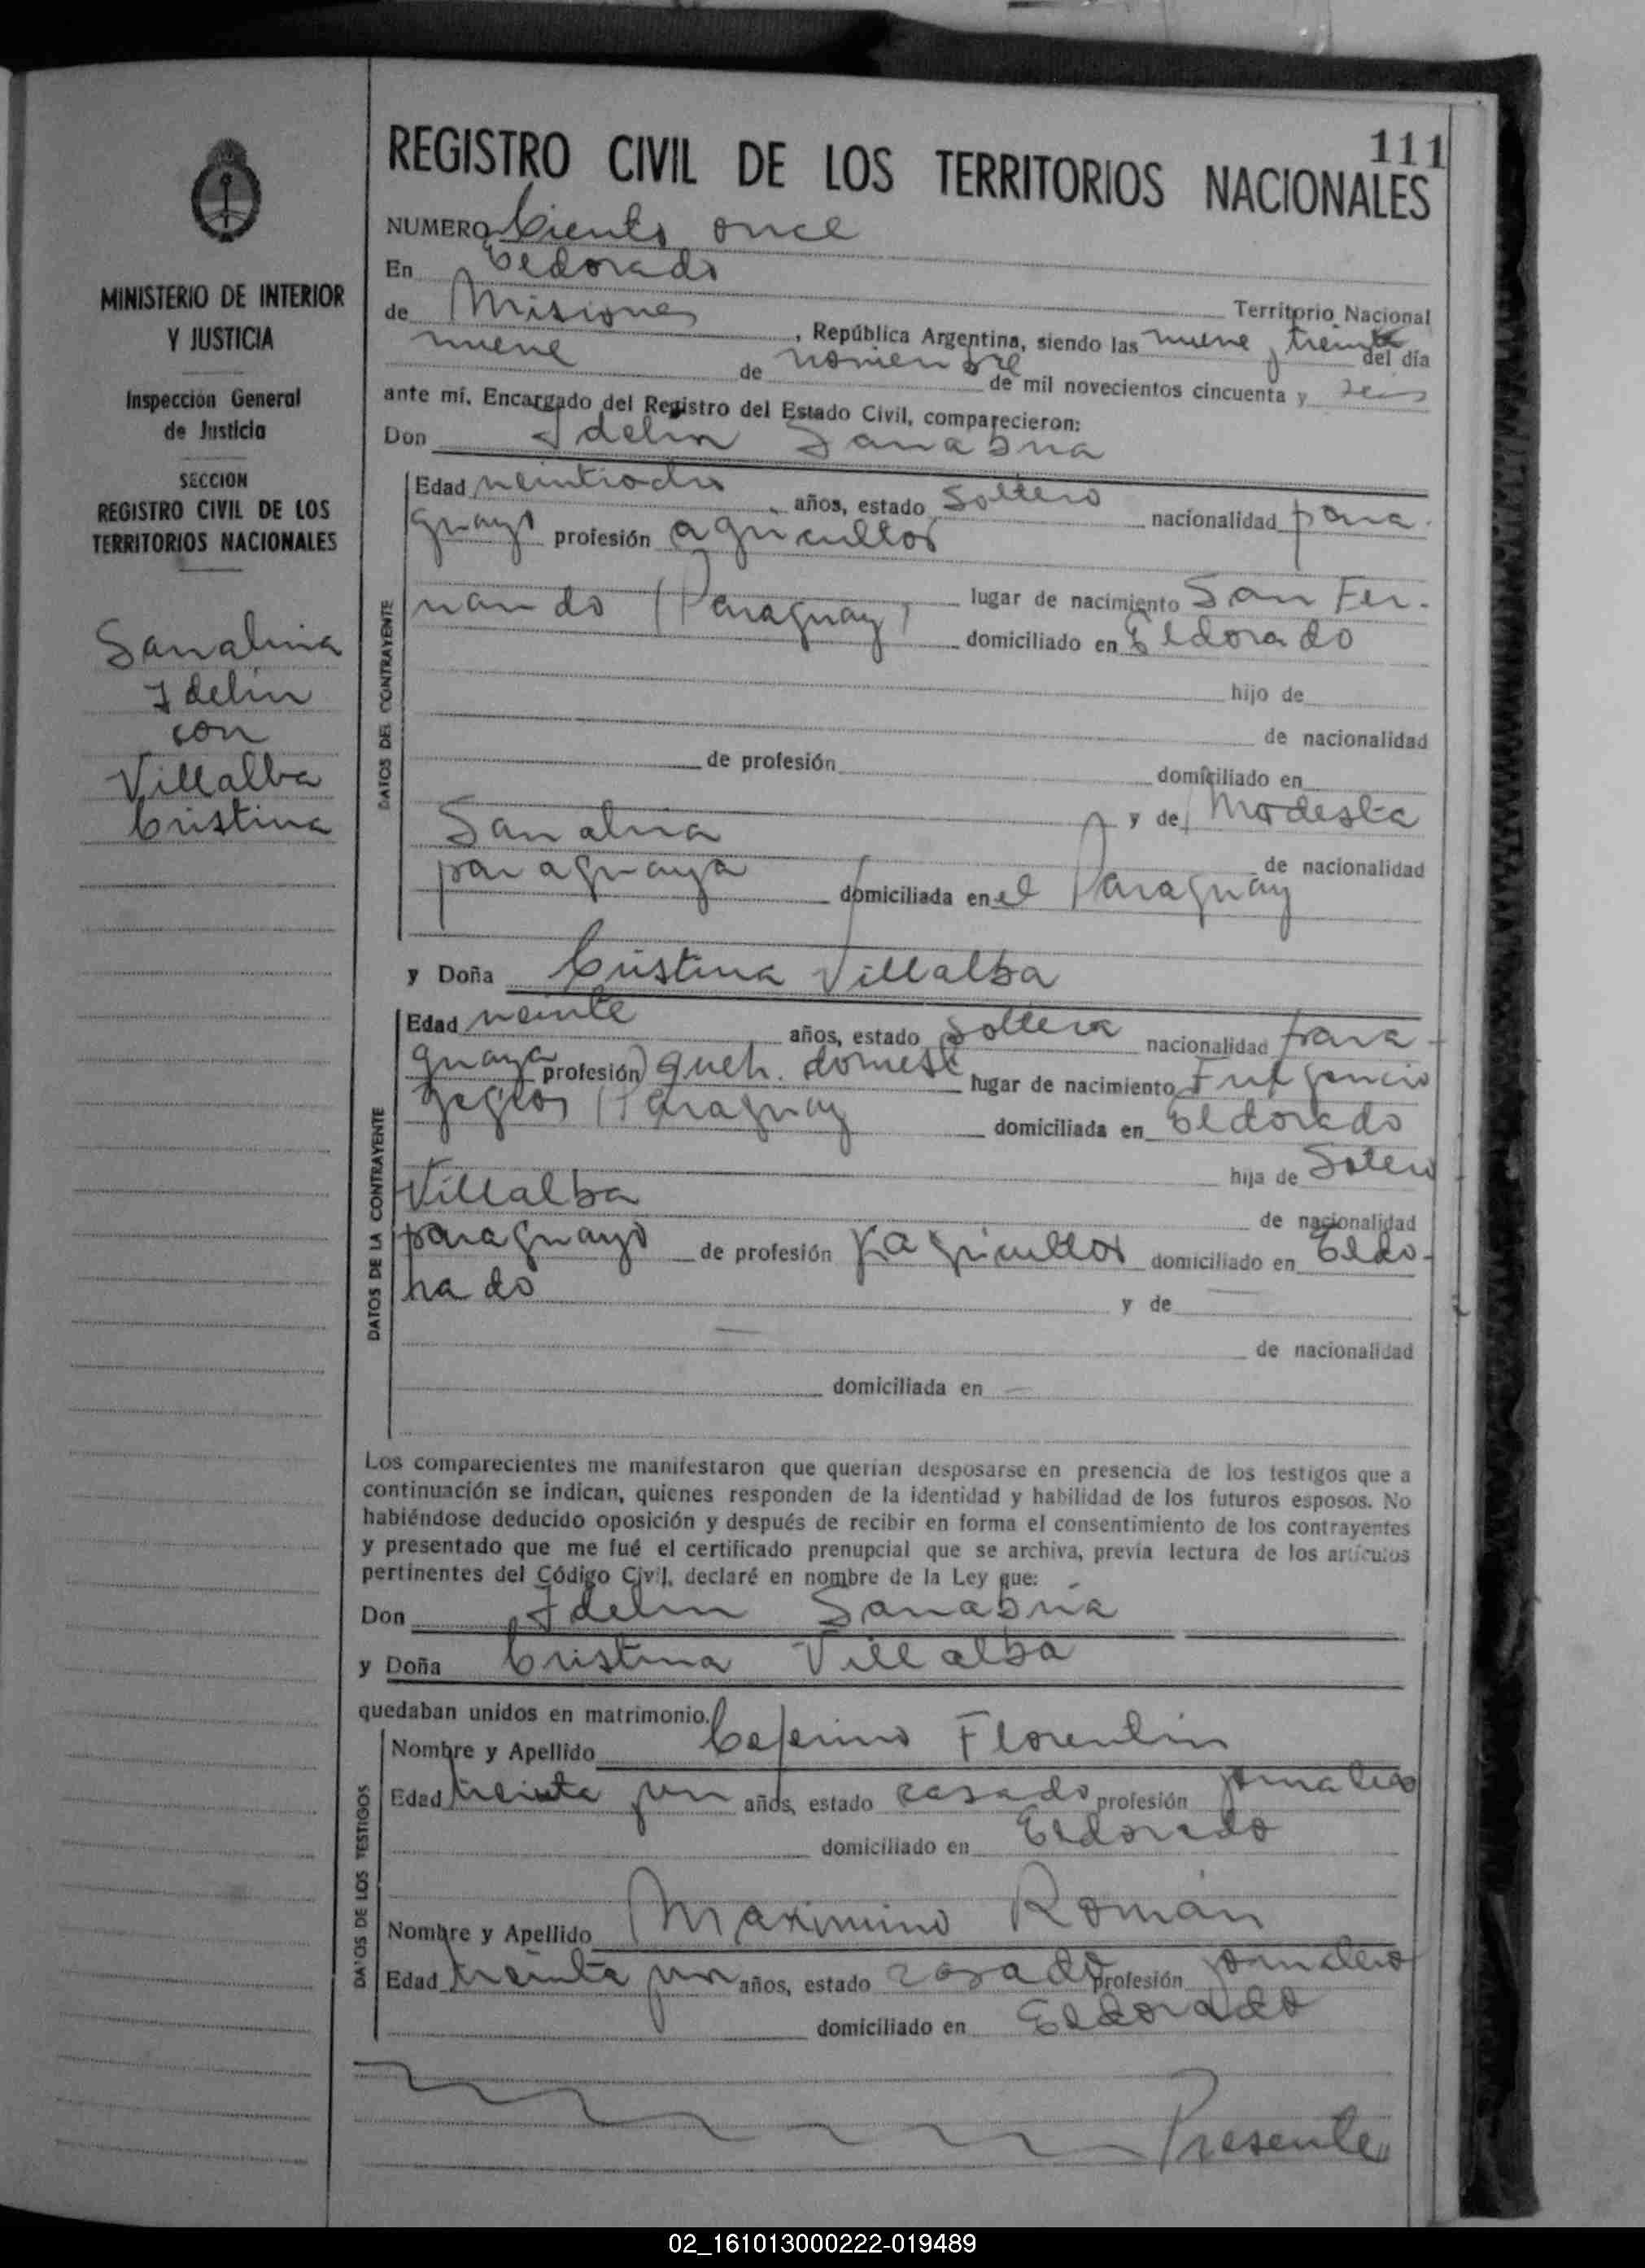 111
REGISTRO CIVIL DE LOS TERRITORIOS NACIONALES
MINISTERIO DE INTERIOR
Y JUSTICIA
Inspección General
de Justicia
SECCION
REGISTRO CIVIL DE LOS
TERRITORIOS NACIONALES
Sanabria
Idelin
con
Villalba
Cristina
NUMERO Ciento once
En Eldorado
Territorio Nacional
de Misiones, República Argentina, siendo las nueve y treinta del día
nueve de noviembre de mil novecientos cincuenta y seis
ante mí, Encargado del Registro del Estado Civil, comparecieron:
Don Idelin Sanabria
DATOS DEL CONTRAYENTE
Edad veintiocho años, estado soltero nacionalidad para-
guayo profesión agricultor
lugar de nacimiento San Fer-
nando (Paraguay) domiciliado en Eldorado
hijo de
de nacionalidad
de profesión domiciliado en
y de Modesta
Sanabria de nacionalidad
paraguaya domiciliada en el Paraguay
y Doña Cristina Villalba
DATOS DE LA CONTRAYENTE
Edad veinte años, estado soltera nacionalidad para-
guaya profesión queh. domest lugar de nacimiento Fulgencio
Yegros (Paraguay domiciliada en Eldorado
hija de Sotero
Villalba de nacionalidad
paraguayo de profesión agricultor domiciliado en Eldo-
rado y de
de nacionalidad
domiciliada en
Los comparecientes me manifestaron que querían desposarse en presencia de los testigos que a
continuación se indican, quienes responden de la identidad y habilidad de los futuros esposos. No
habiéndose deducido oposición y después de recibir en forma el consentimiento de los contrayentes
y presentado que me fué el certificado prenupcial que se archiva, previa lectura de los artículos
pertinentes del Código Civil, declaré en nombre de la Ley que:
Don Idelin Sanabria
y Doña Cristina Villalba
quedaban unidos en matrimonio.
DATOS DE LOS TESTIGOS
Nombre y Apellido Ceferino Florentin
Edad treinta y un años, estado casado profesión jornalero
domiciliado en Eldorado
Nombre y Apellido Maximino Román
Edad treinta y un años, estado casado profesión jornalero
domiciliado en Eldorado
Presente
02_161013000222-019489